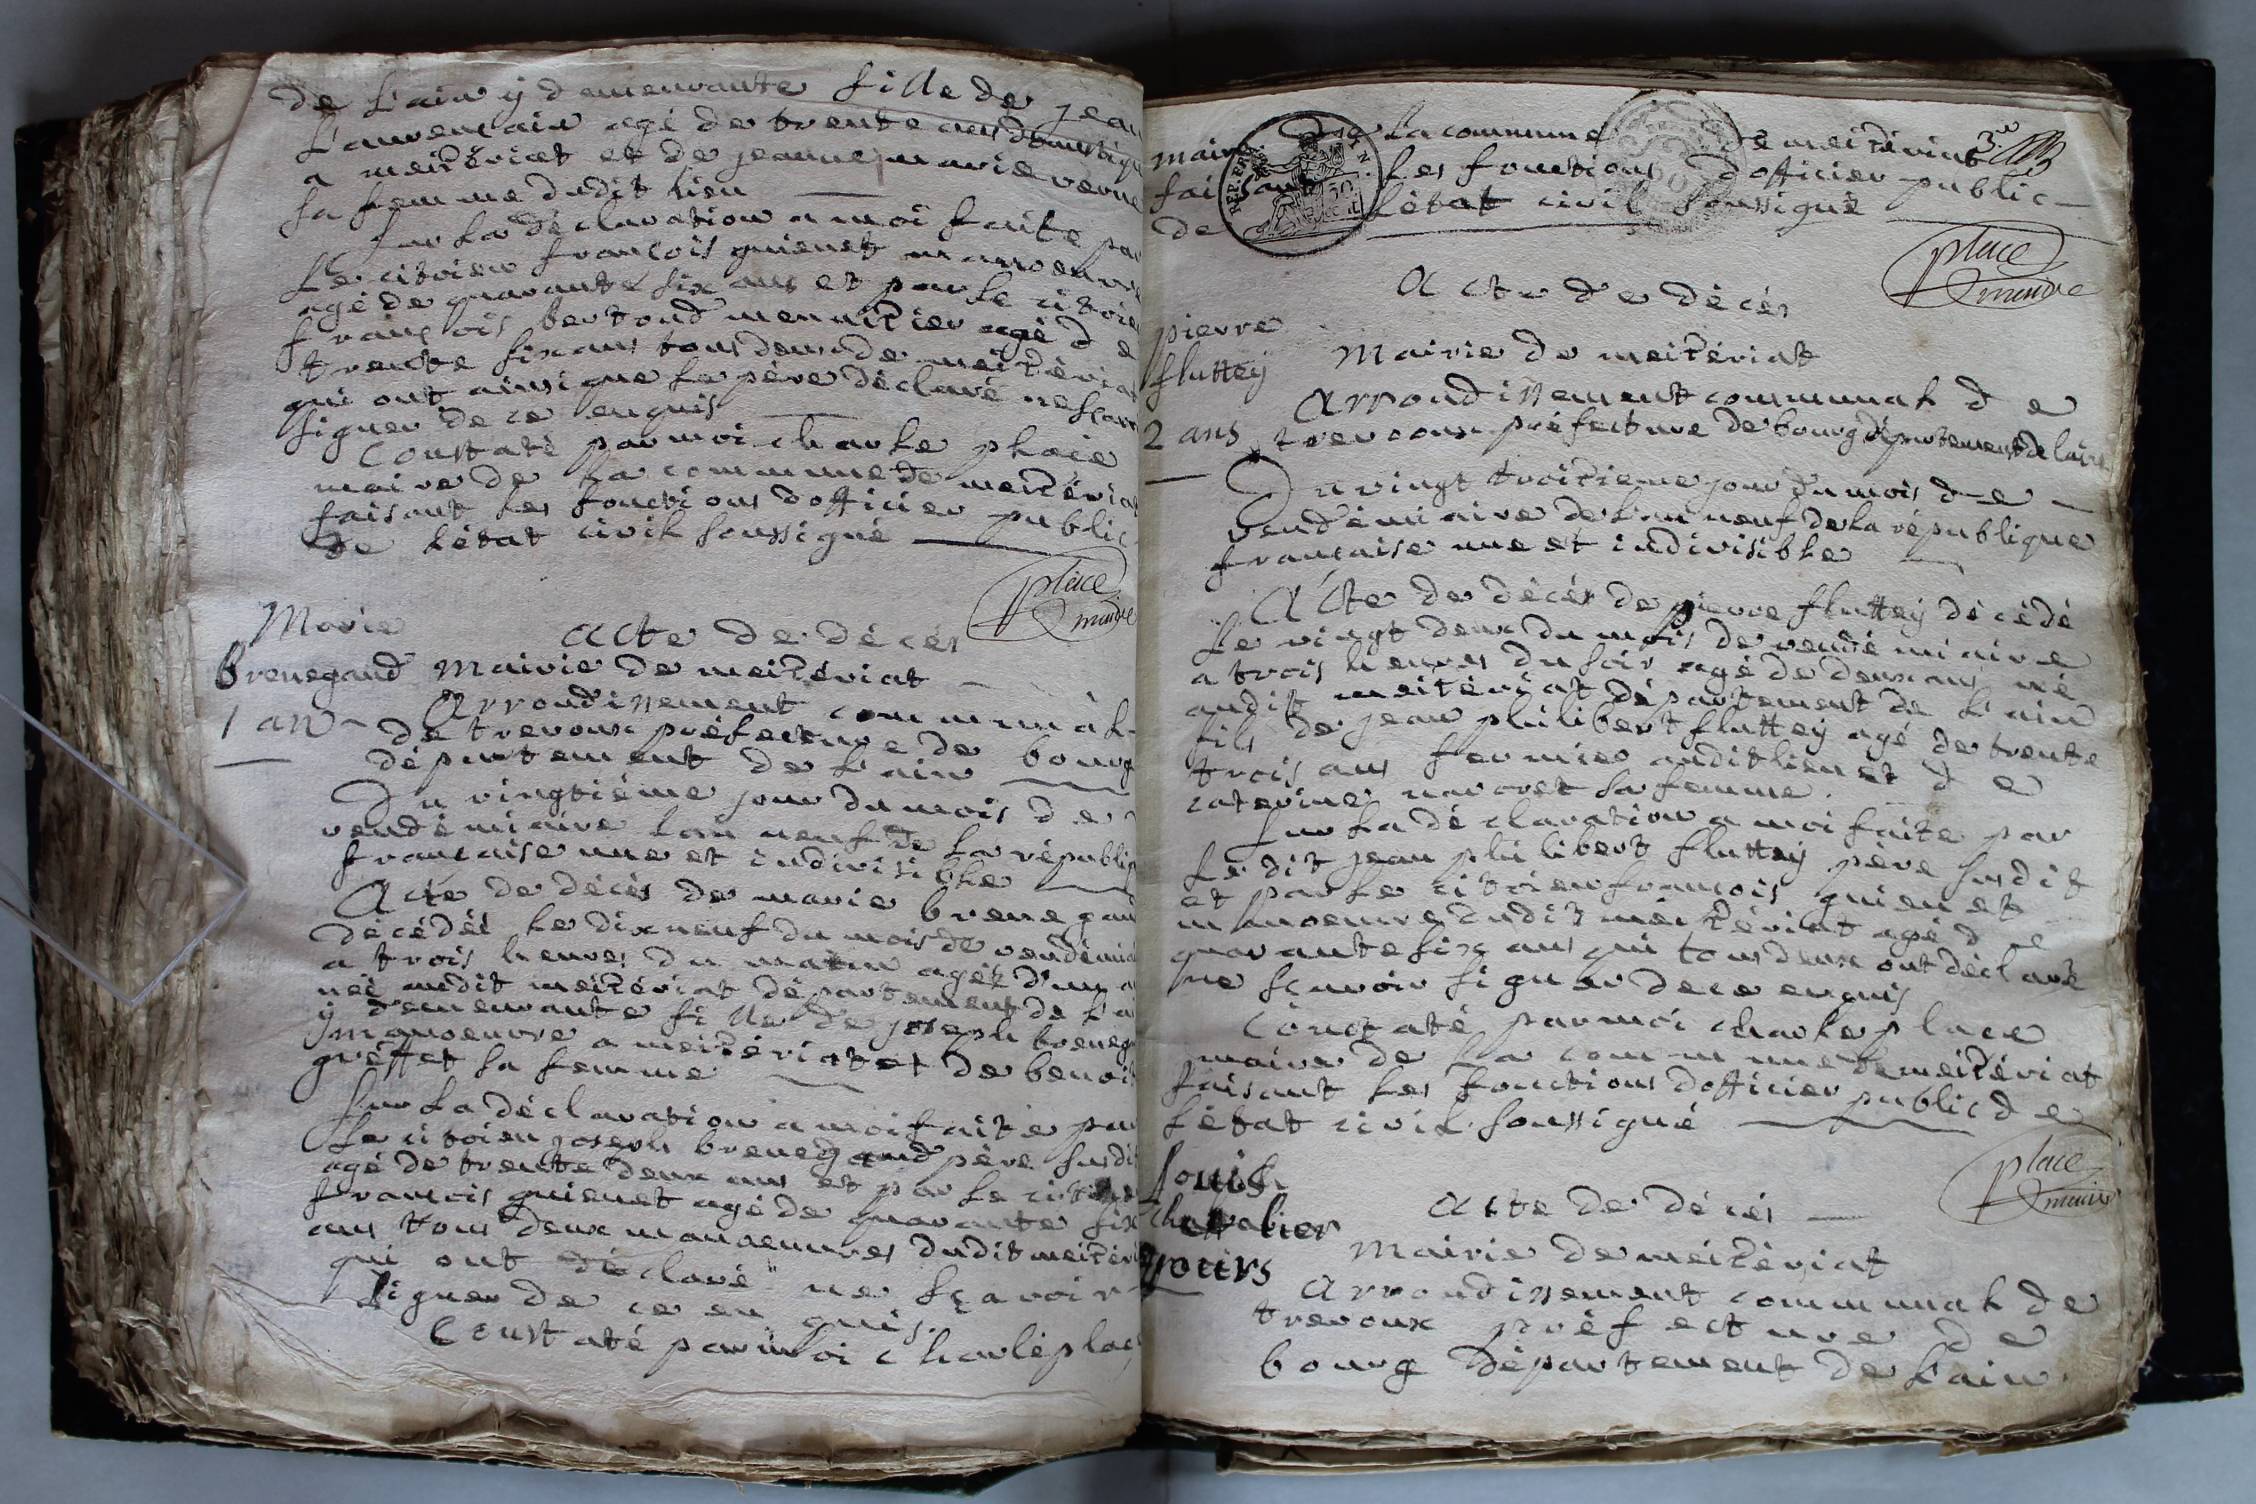 de L'ain y demeurante fille de jean
Laurençain agé de trente ans domestique
a meizériat et de jeanne marie verne
sa femme dudit lieu
Sur La déclaration a moi faite par
Le citoien françois guienet manoeuvre
agé de quarante six ans et par Le citoien
françois bertoud menuizier agé de
trente six ans tous deux de meizériat
qui ont ainsi que Le père déclaré ne sçavoir
signer de ce enquis
Constaté par moi charle place
maire de La commune de meizériat
faisant Les fonctions dofficier public
de Létat civil soussigné
place
maire
Marie
brenegaud
1 an
Acte de décés
Mairie de meizériat
Arrondissement communal
de trevoux préfecture de bourg
département de L'ain
Du vingtième jour du mois de
vendémiaire L'an neuf de La république
française une et indivisible
Acte de décès de marie brenegaud
décédéé Le dix neuf du mois de vendémiaire
a trois heures du matin agéé d'un an
néé audit meizériat département de L'ain
y demeurante fille de joseph brenegaud
manoeuvre a meizériat et de benoite
gréffet sa femme
Sur La déclaration a moi faite par
Le citoien joseph brenegaud père susdit
agé de trente deux ans et par Le citoien
françois guienet agé de quarante six
ans tous deux manoeuvres dudit meizériat
qui ont déclaré ne sçavoir
signer de ce en quis.
Constaté par moi charle place
maire De La commune de meizériat
faisant Les fonctions dofficier public
de Létat civil soussigné
place
maire
REP. FRA.
Acte de décés
pierre
fluttey
2 ans
Mairie de meizériat
Arrondissement communal de
trevoux préfecture de bourg département de L'ain
Du vingt troizieme jour du mois de
vendémiaire de L'an neuf de La république
française une et indivisible
Acte de décés de pierre fluttey décédé
Le vingt deux du mois de vendémiaire
a trois heures du soir agé de deux ans né
audit meizériat département de L'ain
fils de jean philibert fluttey agé de trente
trois ans fermier audit lieu et de
caterine navoret sa femme.
Sur La déclaration a moi faite par
Le dit jean philibert fluttey père susdit
et par Le citoien françois guienet
manoeuvre dudit meizériat agé de
quarante six ans qui tous deux ont déclaré
ne sçavoir signer de ce enquis
Constaté par moi charle place
maire de La commune de meizériat
faisant Les fonctions dofficier public de
Létat civil soussigné
place
maire
Louis
chevalier
jours
Acte de décés
Mairie de meizériat
Arrondissement communal de
trevoux préfecture de
bourg Département de L'ain.